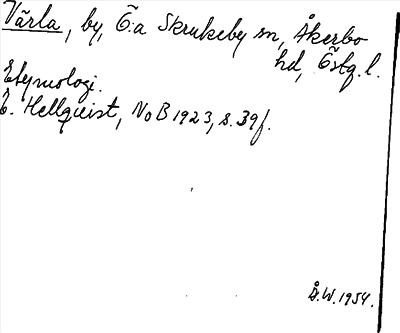 Vārla, by, Ö:a Skrukeby sn, Åkerbo
hd, Östg. l.
Etymologi.
E. Hellquist, NoB 1923, s. 39f.
Å.W. 1954.